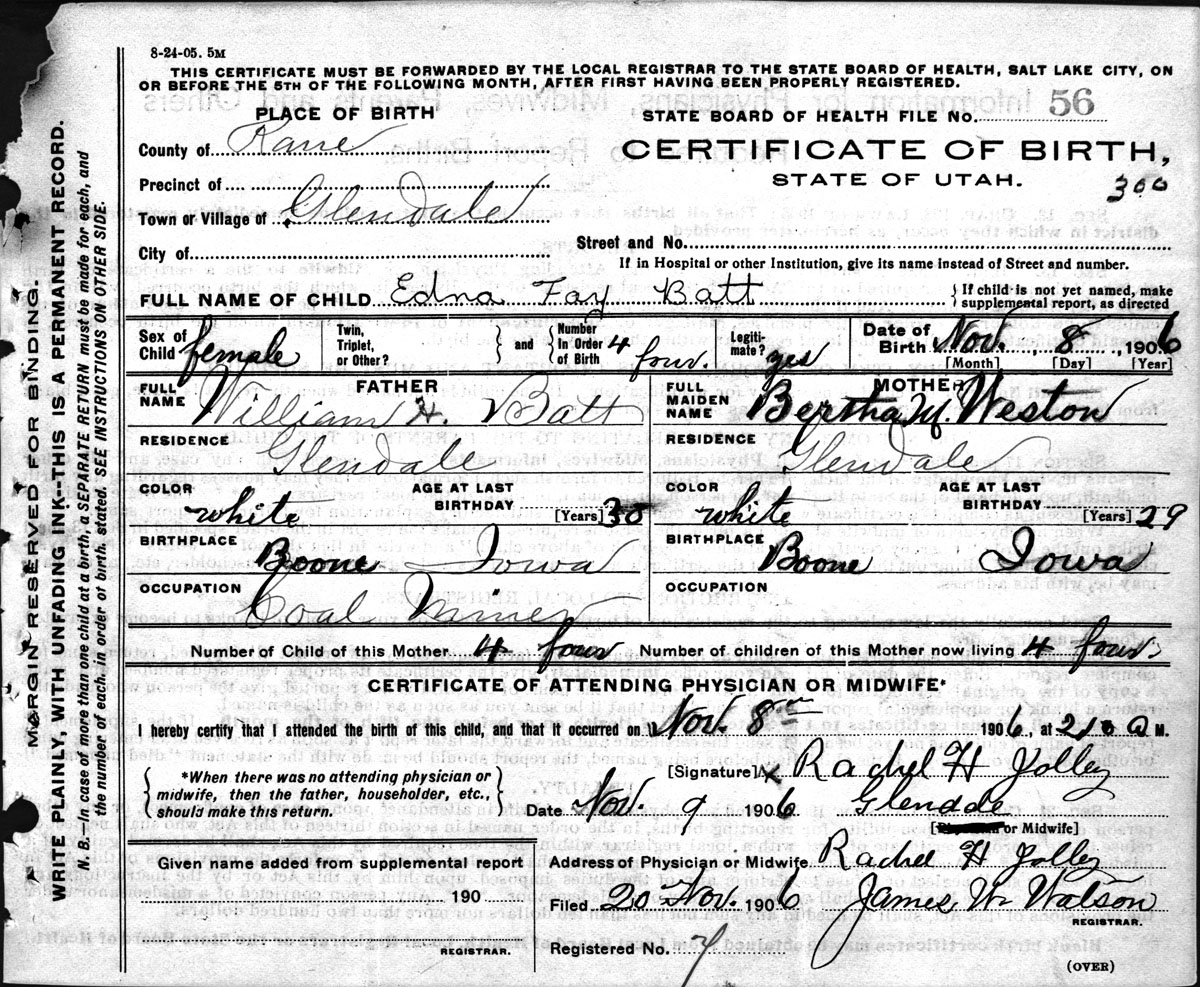 8-24-05. 5M
THIS CERTIFICATE MUST BE FORWARDED BY THE LOCAL REGISTRAR TO THE STATE BOARD OF HEALTH, SALT LAKE CITY, ON
OR BEFORE THE 5TH OF THE FOLLOWING MONTH, AFTER FIRST HAVING BEEN PROPERLY REGISTERED.
PLACE OF BIRTH
STATE BOARD OF HEALTH FILE No. 56
County of Kane
CERTIFICATE OF BIRTH,
STATE OF UTAH.
300
Precinct of
Town or Village of Glendale
City of
Street and No.
If in Hospital or other Institution, give its name instead of Street and number.
FULL NAME OF CHILD Edna Fay Batt
{If child is not yet named, make
supplemental report, as directed
Sex of Child female
Twin, Triplet, or Other?
} and {
Number In Order of Birth 4 four.
Legiti- mate? yes
Date of Birth Nov. 8, 1906
[Month] [Day] [Year]
FATHER
FULL NAME William H. Batt
RESIDENCE
Glendale
COLOR white
AGE AT LAST BIRTHDAY [Years] 30
BIRTHPLACE
Boone Iowa
OCCUPATION
Coal Miner
MOTHER
FULL MAIDEN NAME Bertha M Weston
RESIDENCE
Glendale
COLOR white
AGE AT LAST BIRTHDAY [Years] 29
BIRTHPLACE
Boone Iowa
OCCUPATION
Number of Child of this Mother 4 four Number of children of this Mother now living 4 four
CERTIFICATE OF ATTENDING PHYSICIAN OR MIDWIFE*
I hereby certify that I attended the birth of this child, and that it occurred on Nov. 8th 1906, at 2 a M.
{*When there was no attending physician or
midwife, then the father, householder, etc.,
should make this return.}
[Signature] x Rachel H Jolley
Date Nov. 9 1906 Glendale
[Physician or Midwife]
Given name added from supplemental report
190
REGISTRAR.
Address of Physician or Midwife Rachel H Jolley
Filed 20 Nov. 1906 James W. Watson
REGISTRAR.
Registered No. 7
(OVER)
MARGIN RESERVED FOR BINDING.
WRITE PLAINLY, WITH UNFADING INK--THIS IS A PERMANENT RECORD.
N. B.—In case of more than one child at a birth, a SEPARATE RETURN must be made for each, and
the number of each, in order of birth, stated. SEE INSTRUCTIONS ON OTHER SIDE.